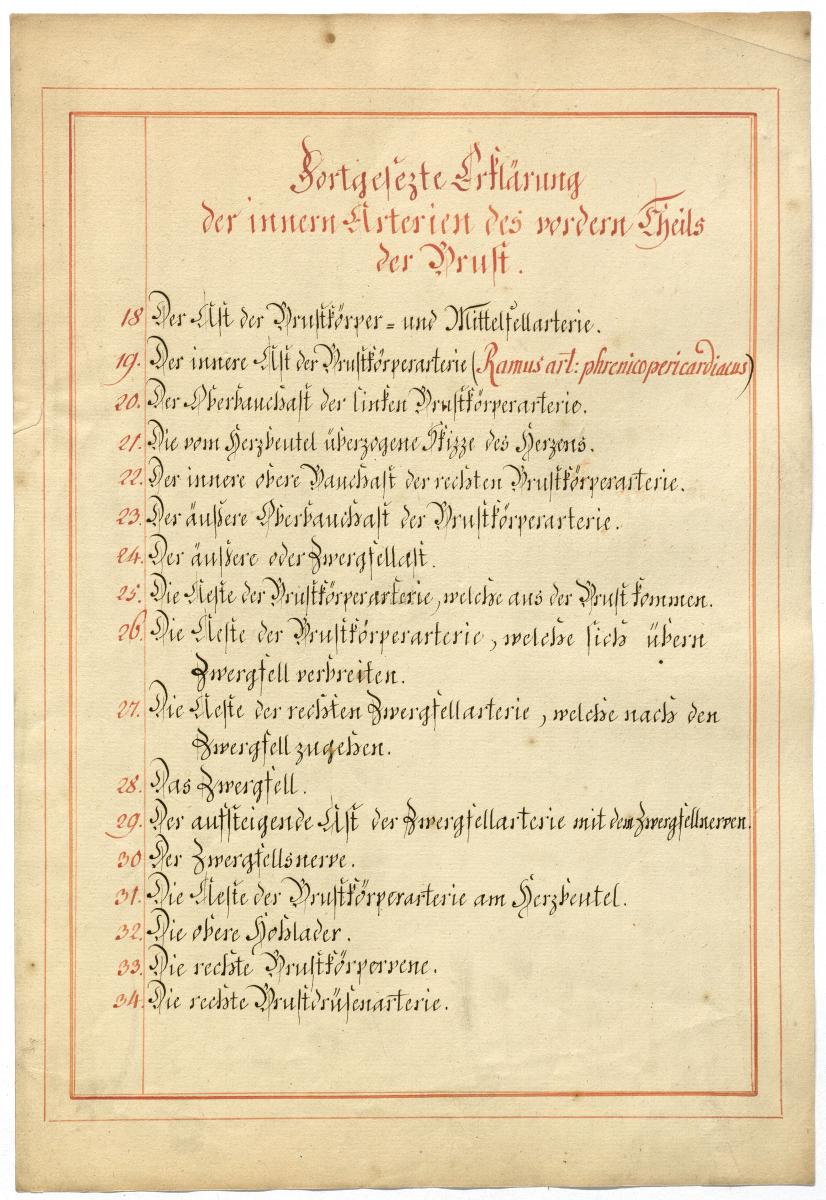 Fortgesezte Erklärung
der innern Arterien des vordern Theils
der Brust.
18 Der Ast der Brustkörper= und Mittelfellarterie.
19. Der innere Ast der Brustkörperarterie (Ramus art: phrenico pericardiacus)
20. Der Oberbauchast der linken Brustkörperarterie.
21. Die vom Herzbeutel überzogene Skizze des Herzens.
22. Der innere obere Bauchast der rechten Brustkörperarterie.
23. Der äußere Oberbauchast der Brustkörperarterie.
24. Der äußere oder Zwergfellast.
25. Die Aeste der Brustkörperarterie, welche aus der Brust kommen.
26. Die Aeste der Brustkörperarterie, welche sich übern
Zwergfell verbreiten.
27. Die Aeste der rechten Zwergfellarterie, welche nach den
Zwergfell zugehen.
28. Das Zwergfell.
29. Der aufsteigende Ast der Zwergfellarterie mit dem Zwergfellnerven.
30 Der Zwergfellsnerve.
31. Die Aeste der Brustkörperarterie am Herzbeutel.
32. Die obere Hohlader.
33. Die rechte Brustkörpervene.
34. Die rechte Brustdrüsenarterie.